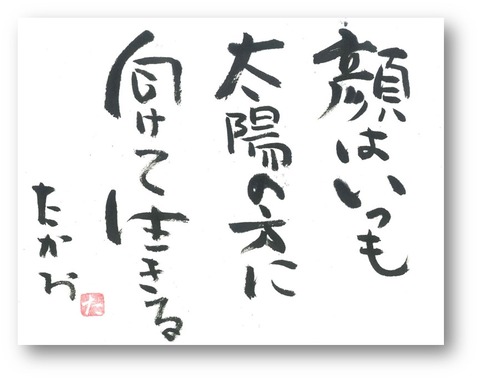 顔はいつも
太陽の方に
向けて生きる
たかお
た